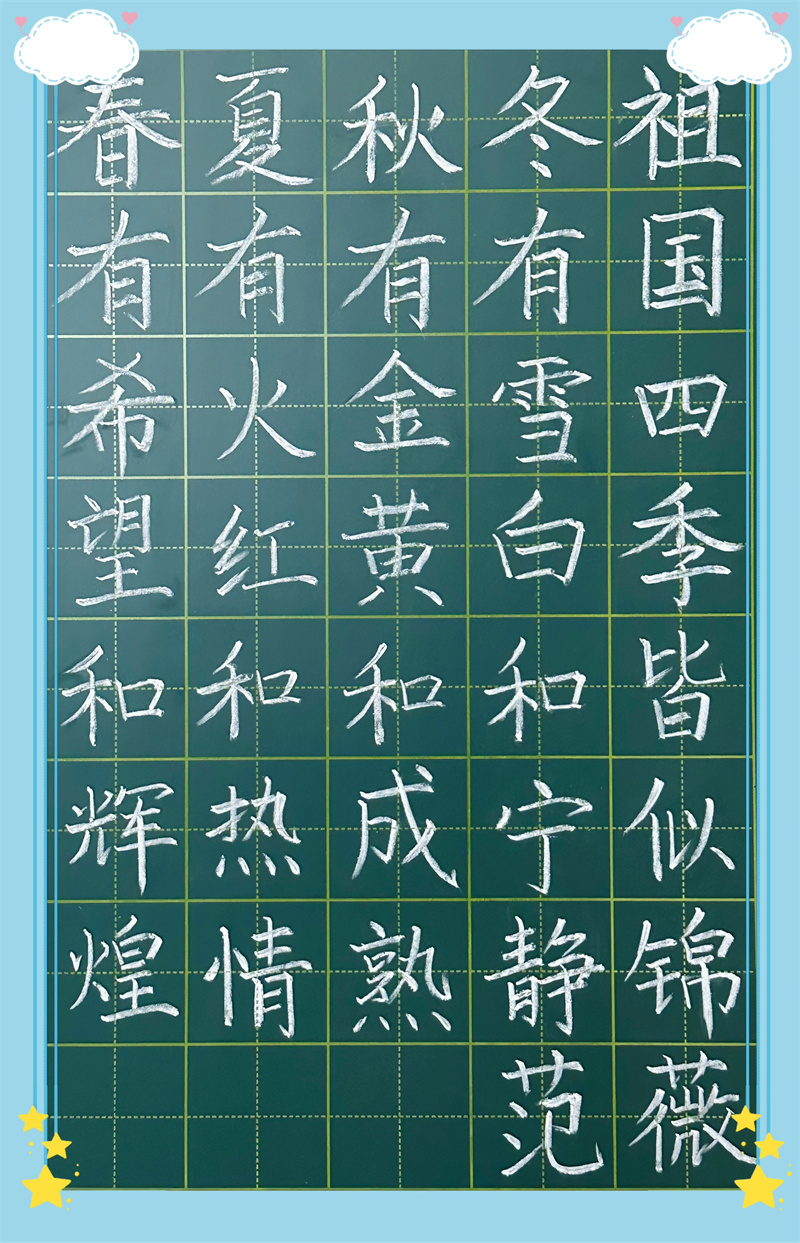 春有希望和辉煌
夏有火红和热情
秋有金黄和成熟
冬有雪白和宁静
祖国四季皆似锦
范薇